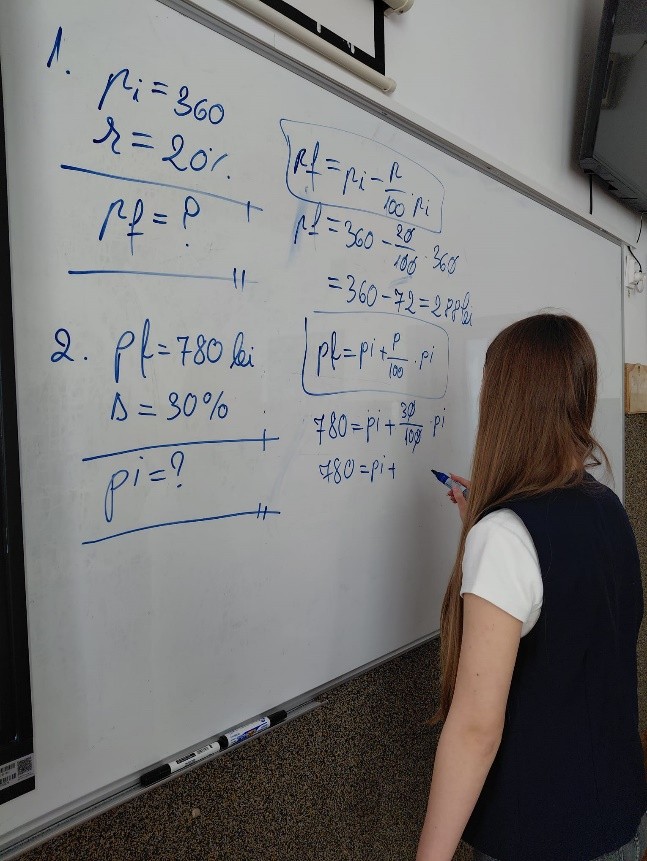 1.
pi = 360
r = 20%
pf = ?
pf = pi - p/100 · pi
pf = 360 - 20/100 · 360
= 360 - 72 = 288 lei
2. pf = 780 lei
s = 30%
pi = ?
pf = pi + p/100 · pi
780 = pi + 30/100 · pi
780 = pi +